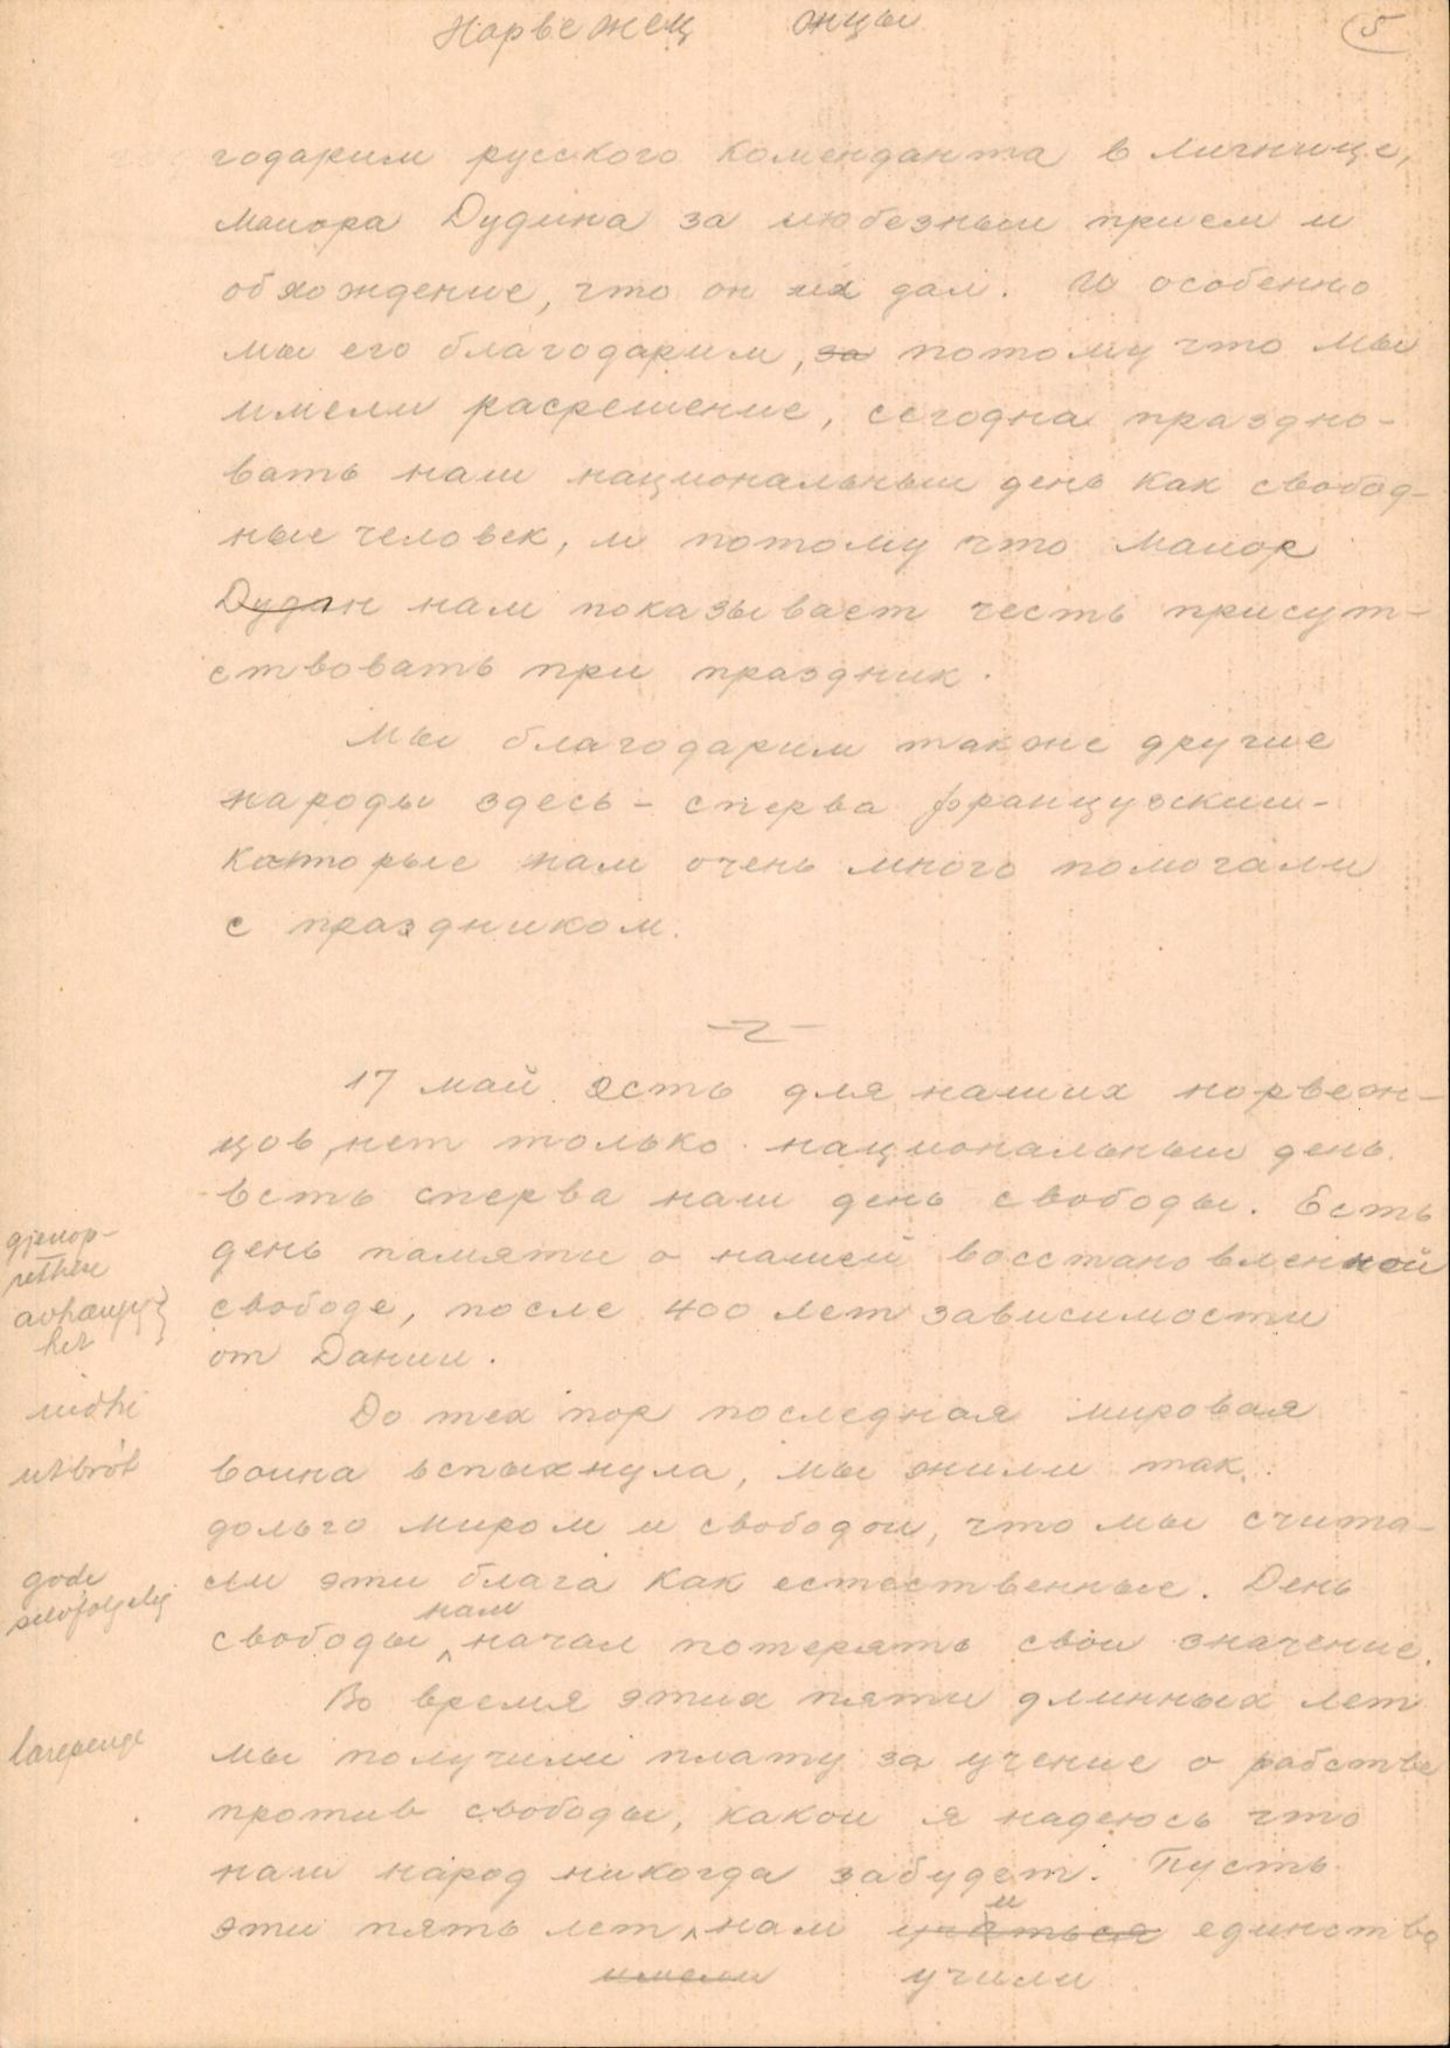 Норвежец жцы 5
годарим русского коменданта в Лигнице,
маиора Дудина за любезныи прием и
обхождение, что он их дал. И особенно
мы его благодарим, за потому что мы
имели расрешение, сегодна праздно-
вать наш национальныи день как свобод-
ные человек, и потому что маиор
Дудин нам показывает честь присут-
ствовать при праздник.
Мы благодарим также другие
народы здесь - сперва французкии -
которые нам очень много помогали
с праздником.
17 май есть для наших норвеж-
цов, нет только национальныи день.
Есть сперва наш день свободы. Есть
gjenop-
день памяти о нашей восстановленной
retthe
свободе, после 400 лет зависимости
avhengig-
het
от Дании.
До тех пор последная мировая
utbröt
воина вспыхнула, мы жили так
дольго миром и свободои, что мы счита-
gode
ем эти блага как естественные. День
selvfølgelig
нам
свободы начал потерять свои значение.
Во время этих пяти длинных лет
lærepenge
мы получили плату за учение о рабстве
против свободы, какои я надеюсь что
наш народ никогда забудет. Пусть
и
эти пять лет нам учяться единство
имели учили